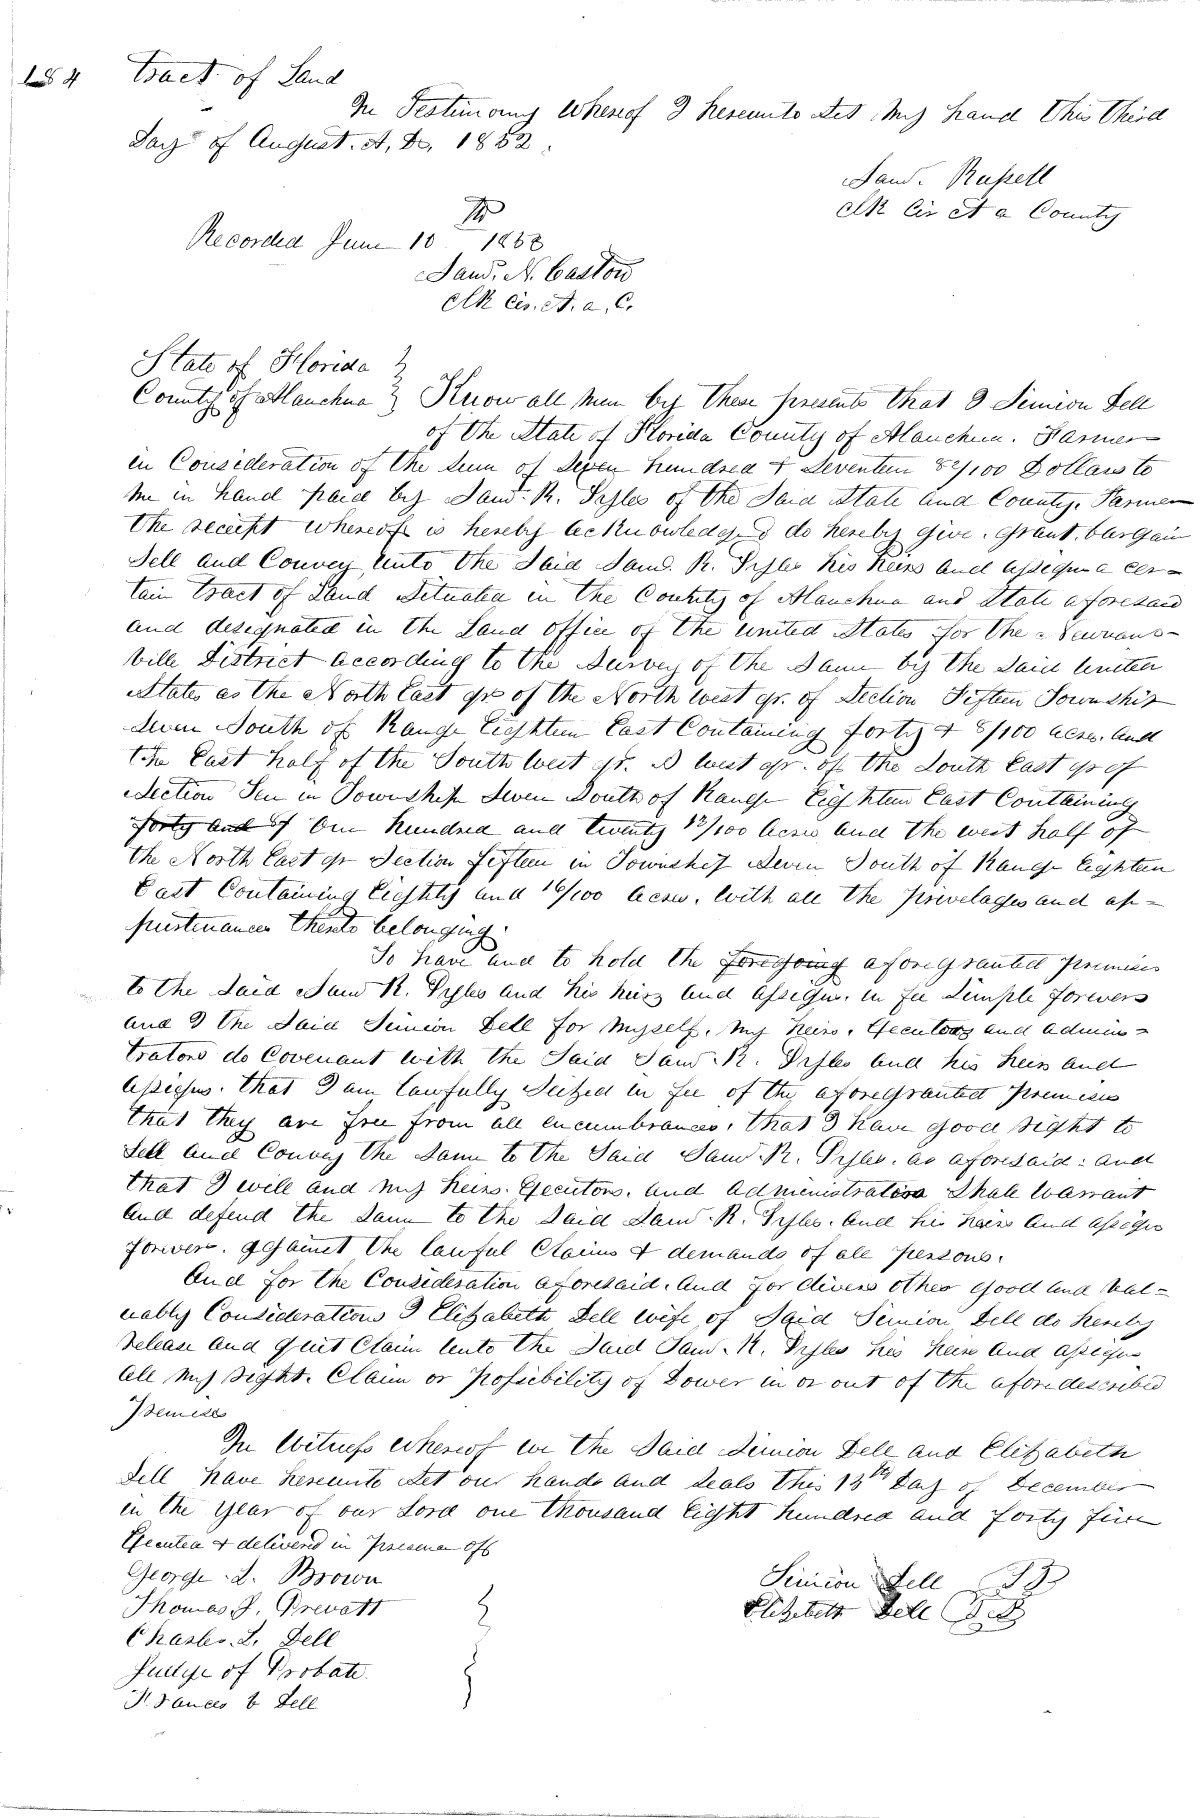 184
tract of Land
In Testimony Whereof I hereunto Set my hand this third
Day of August. A, D, 1852.
Saml. Russell
Clk Cir Ct A County
Recorded June 10th 1853
Saml. N. Caston
Clk Cir. Ct. A. C.
State of Florida }
County of Alauchua } Know all Men by these presents that I Simion Dell
of the State of Florida County of Alauchua. Farmer
in Consideration of the Sum of Seven hundred & Seventeen 82/100 Dollars to
me in hand paid by Saml. R. Pyles of the Said State and County, Farmer
the receipt whereof is hereby acknowledged do hereby give, grant, bargain
Sell and Convey unto the Said Saml. R. Pyles his heirs and assigns a cer=
tain tract of Land Situated in the County of Alauchua and State aforesaid
and designated in the Land office of the united States for the Newnans-
ville District according to the Survey of the Same by the Said United
States as the North East qr of the North West qr. of Section Fifteen Township
Seven South of Range Eighteen East Containing forty & 8/100 acres. and
the East half of the South West qr. & West qr. of the South East qr of
Section Ten in Township Seven South of Range Eighteen East Containing
forty and 8/ One hundred and twenty 12/100 acres and the west half of
the North East qr Section fifteen in Township Seven South of Range Eighteen
East Containing Eighty and 16/100 acres, with all the privelages and ap=
purtinances thereto belonging.
To have and to hold the foregoing aforegranted premises
to the Said Saml R. Pyles and his heirs and assigns, in fee Simple forevers
and I the Said Simion Dell for myself, my heirs, Executors and admins=
trators do Covenant with the Said Saml. R. Pyles and his heirs and
assigns. that I am lawfully Seized in fee of the aforegranted premises
that they are free from all encumbrances, that I have good right to
Sell and Convey the Same to the Said Saml. R. Pyles. as aforesaid: and
that I will and my heirs. Executors. and administrators Shall Warrant
and defend the Same to the Said Saml. R. Pyles. and his heirs and assigns
forever. against the lawful Claims & demands of all persons.
And for the Consideration aforesaid. and for divers other good and val=
uably Considerations I Elizabeth Dell wife of Said Simion Dell do hereby
release and quit Claim unto the Said Saml. R. Pyles his heirs and assigns
all my right. Claim or possibility of Dower in or out of the aforedescribed
Premises
In Witness Whereof we the Said Simion Dell and Elizabeth
Dell have hereunto Set our hands and Seals this 13th Day of December
in the year of our Lord one thousand Eight hundred and forty five
Executed & delivered in presence off
George. L. Brown
Thomas J. Prevatt
Charles. L. Dell
Judge of Probate.
Frances C Dell
Simion Dell
Elizebeth Dell